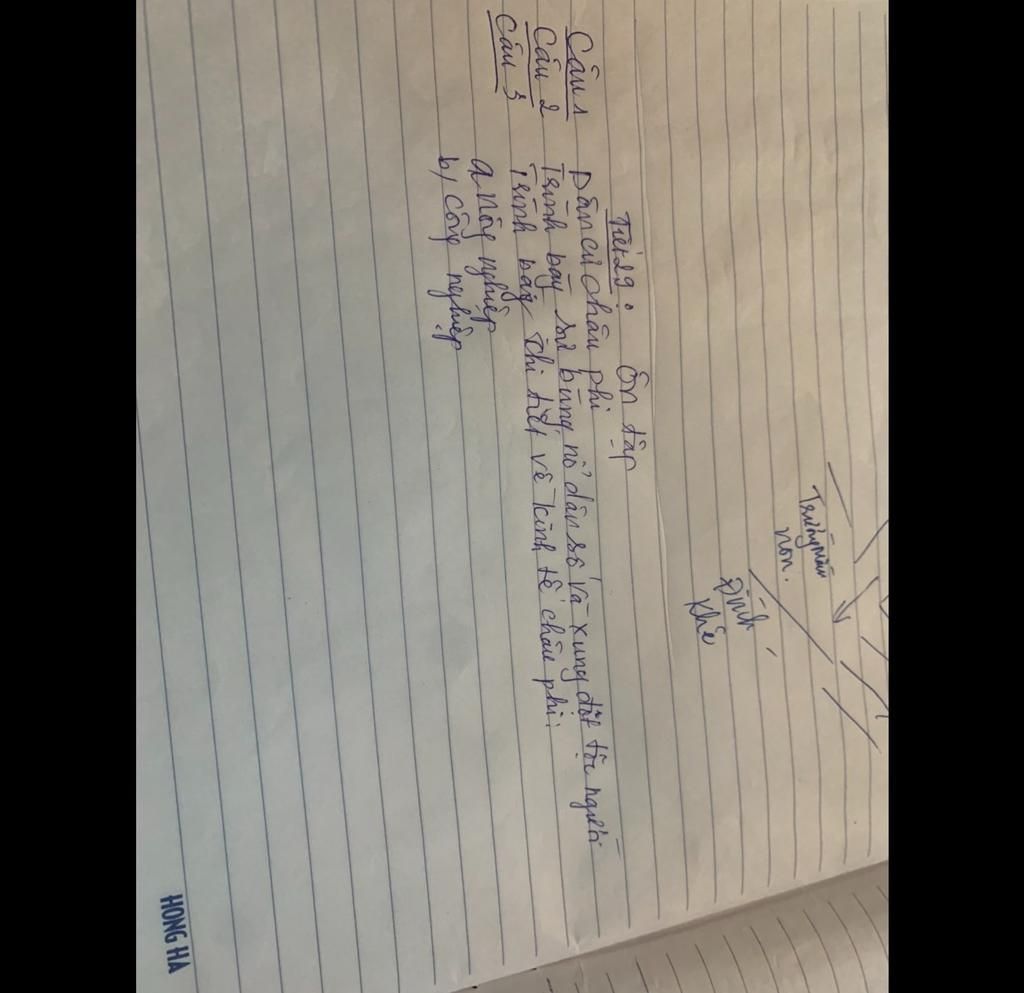 Trường mần
non.
Đình
Khê
Tiết 29: Ôn tập
Câu 1 Dân cư châu phi
Câu 2 Trình bày sự bùng nổ dân số và xung đột tộc người
Câu 3 Trình bày chi tiết về kinh tế châu phi:
a, Nông nghiệp
b, Công nghiệp
HONG HA